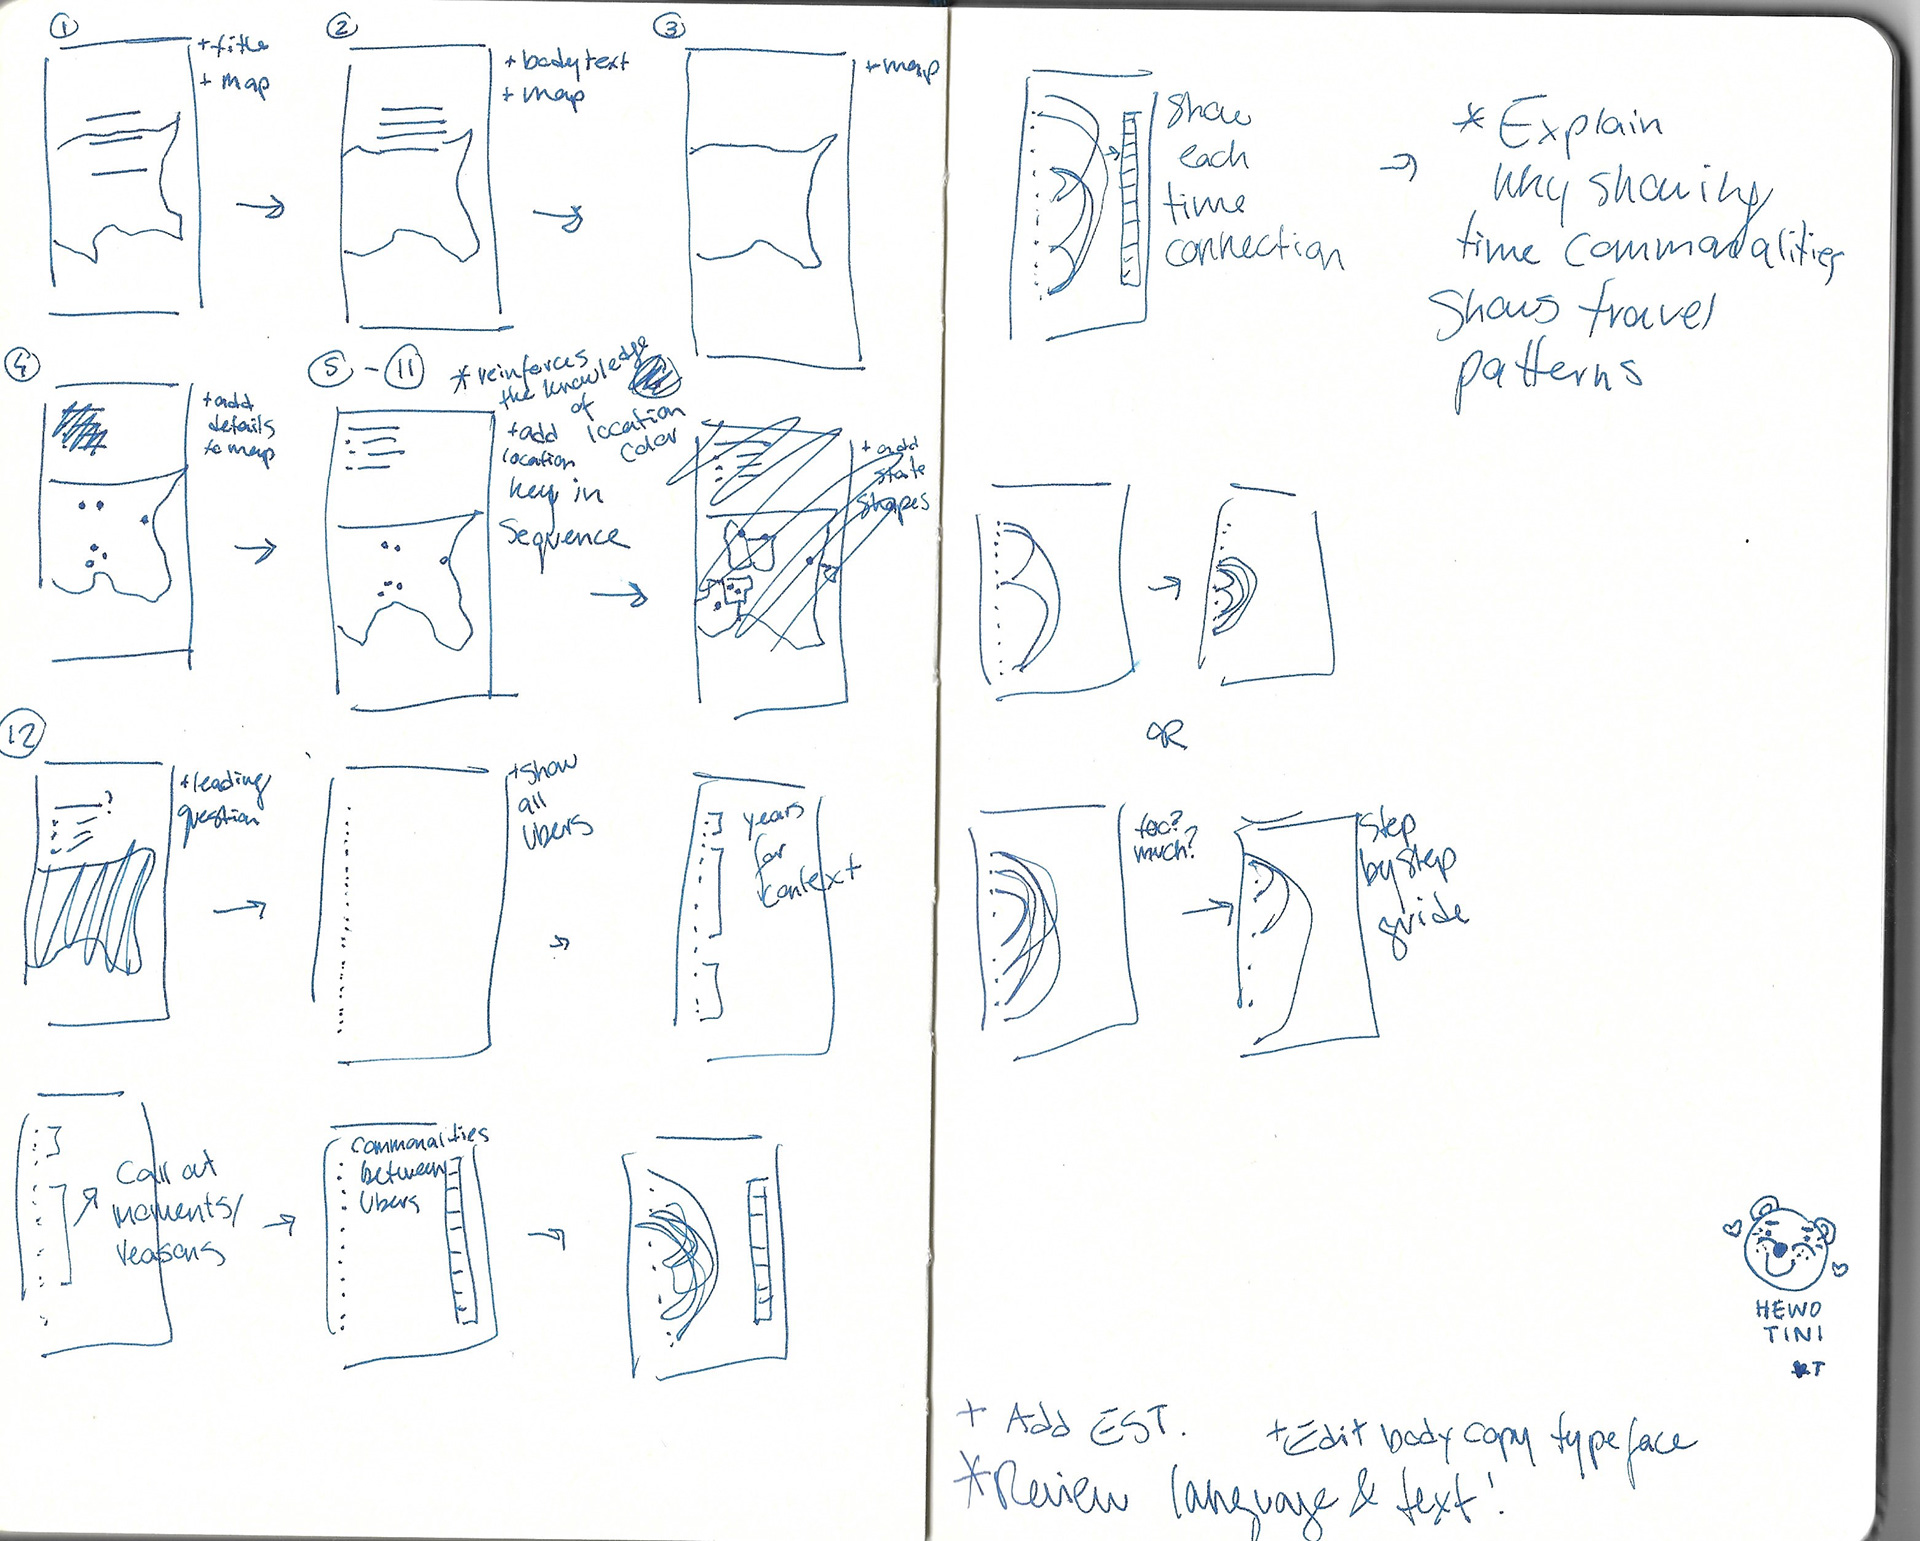 1
+title
+ map
2
+ body text
+ map
3
+ map
4
+add
details
to map
5 - 11
* reinforces
the knowledge
of
location
color
+add
location
key in
sequence
+ add
state
shapes
12
?
+leading
question
+show
all
Ubers
years
for
context
Call out
moments/
reasons
Commonalities
between
Ubers
Show
each
time
connection
* Explain
why showing
time commonalities
shows travel
patterns
OR
too?
much?
step
by step
guide
HEWO
TINI
+ Add EST.
+Edit body copy typeface
*Review language & text!